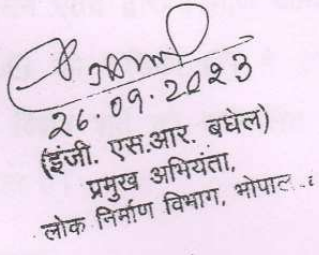 26.09.2023
(इंजी. एस.आर. बघेल)
प्रमुख अभियंता,
लोक निर्माण विभाग, भोपाल